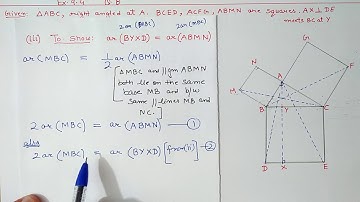 Ex 9.4 Q.8
Given: △ABC, right angled at A. BCED, ACFG, ABMN are squares. AX⊥DE
meets BC at Y
2ar(MBC) 2ar(MBC)
(iii) To Show: ar(BYXD) = ar(ABMN)
ar(MBC) = 1/2 ar(ABMN)
[△MBC and ||gm ABMN
both lie on the same
base MB and b/w
same || lines MB and
NC.]
2 ar(MBC) = ar(ABMN) —①
also
2 ar(MBC) = ar(BYXD) [from(ii)] —②
G
N
F
A
M
B
Y
C
D
X
E